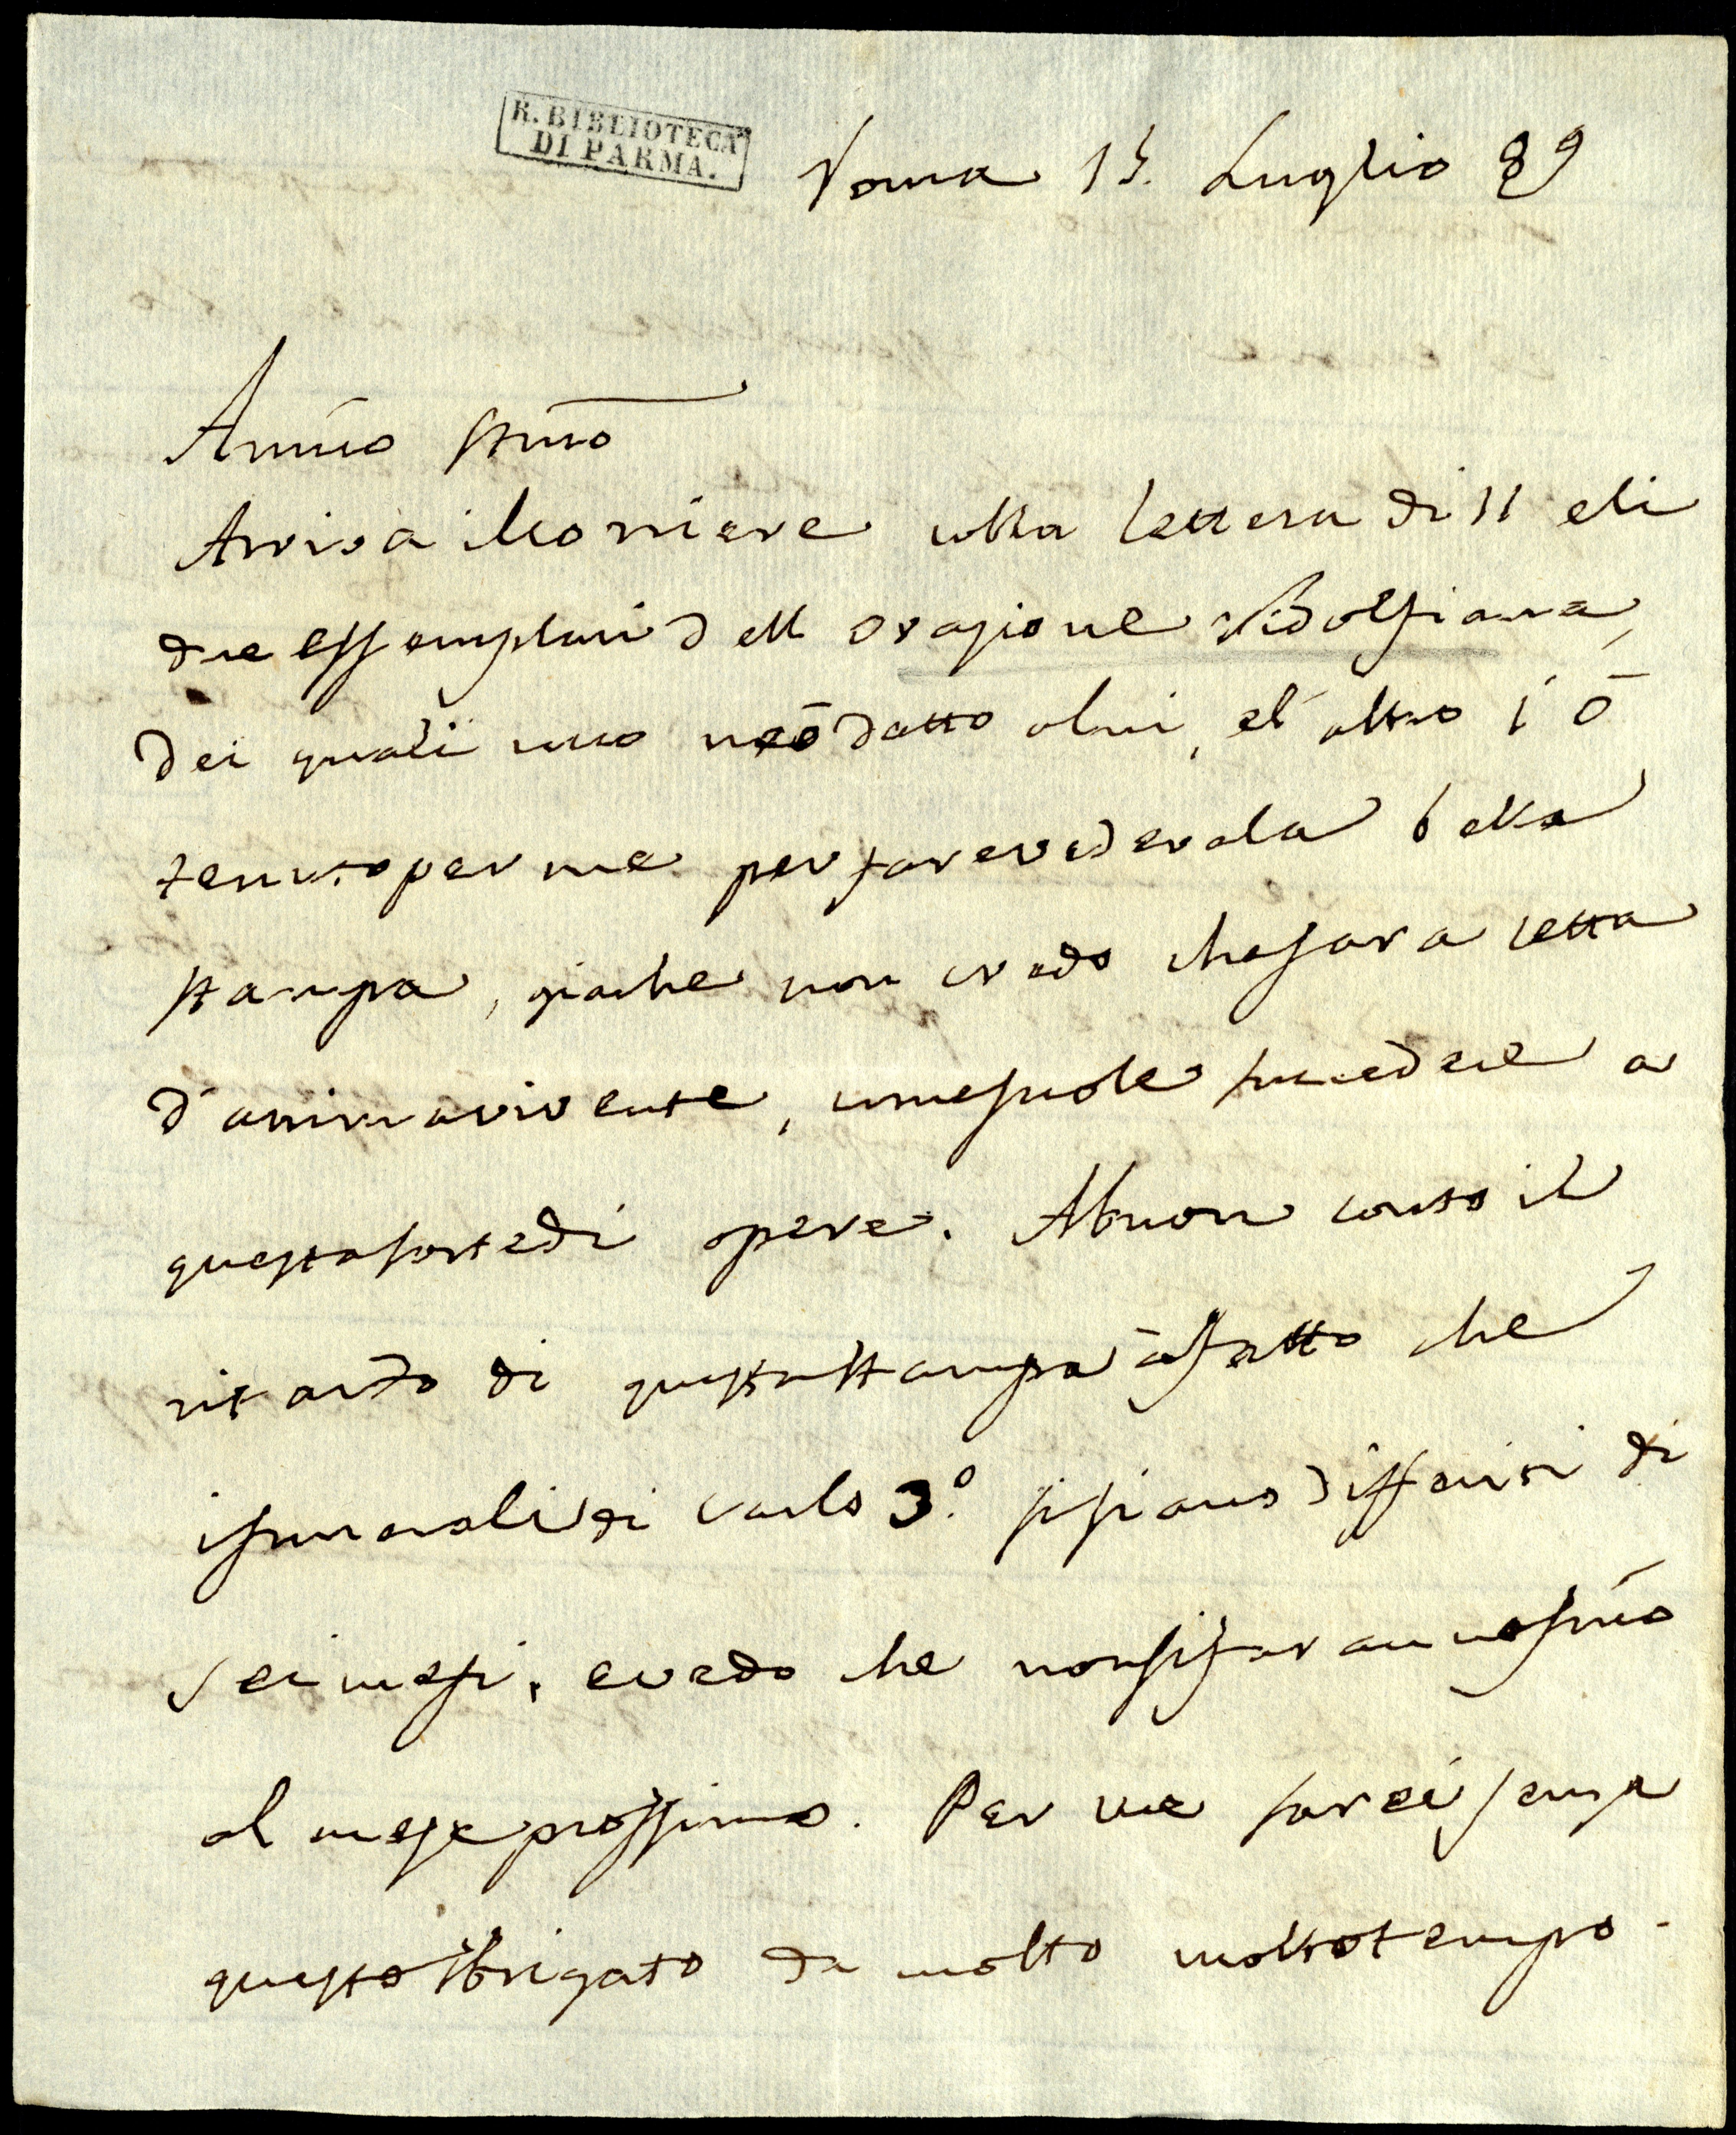 R. BIBLIOTECA
DI PARMA.
Roma 15. Luglio 89
Amico stimo
Arriva il corriere colla lettera di 11 eli
due essemplari dell orazione Ridolfiana,
dei quali uno neō datto alui, el altro l' ō
tenuto per me per fare vedere la bella
stampa, giache non credo che sara letta
d'anima vivente, come suole succedere a
questa sorte di opere. Abuon conto il
ritardo di questa stampa ā fatto che
i funerali di Carlo 3.º si siano differiti di
sei mesi, e credo che non si faranno sino
al mese prossimo. Per me sarei senza
questo sbrigato da molto molto tempo.